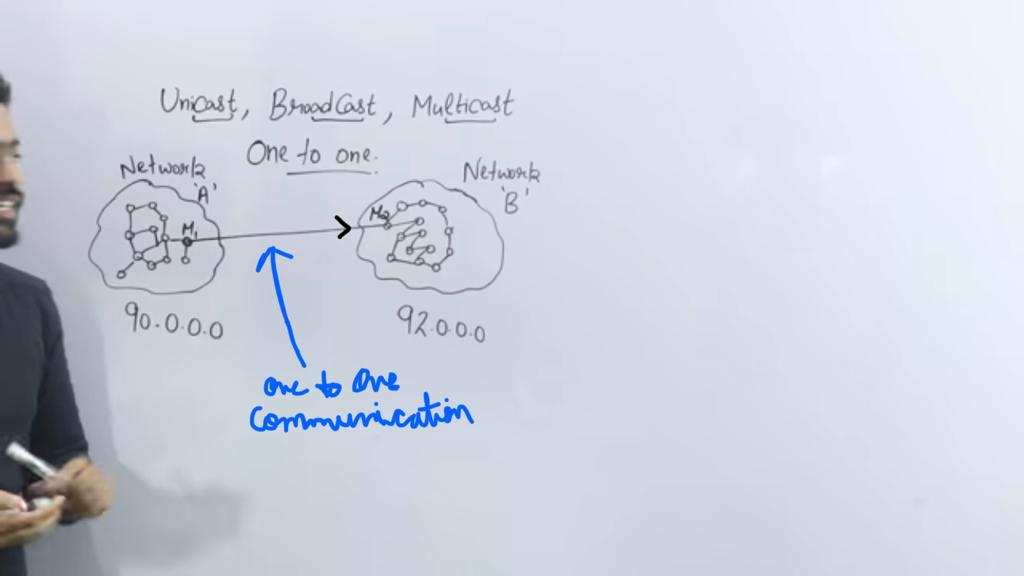 Unicast, BroadCast, Multicast
One to one.
Network 'A'
Network 'B'
M1
M2
90.0.0.0
92.0.0.0
one to One
communication